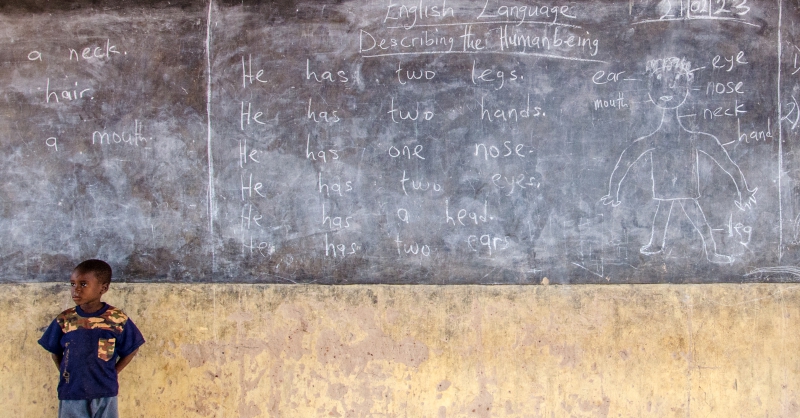 a neck.
hair.
a mouth.
English Language
Describing the Human being
He has two legs.
He has two hands.
He has one nose.
He has two eyes.
He has a head.
has two ears
ear
mouth
eye
nose
neck
hand
leg